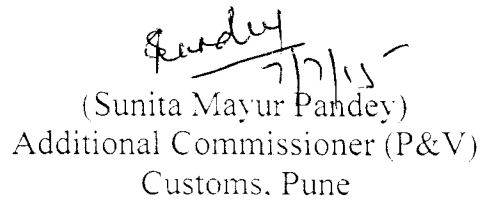 7/7/15
(Sunita Mayur Pandey)
Additional Commissioner (P&V)
Customs, Pune